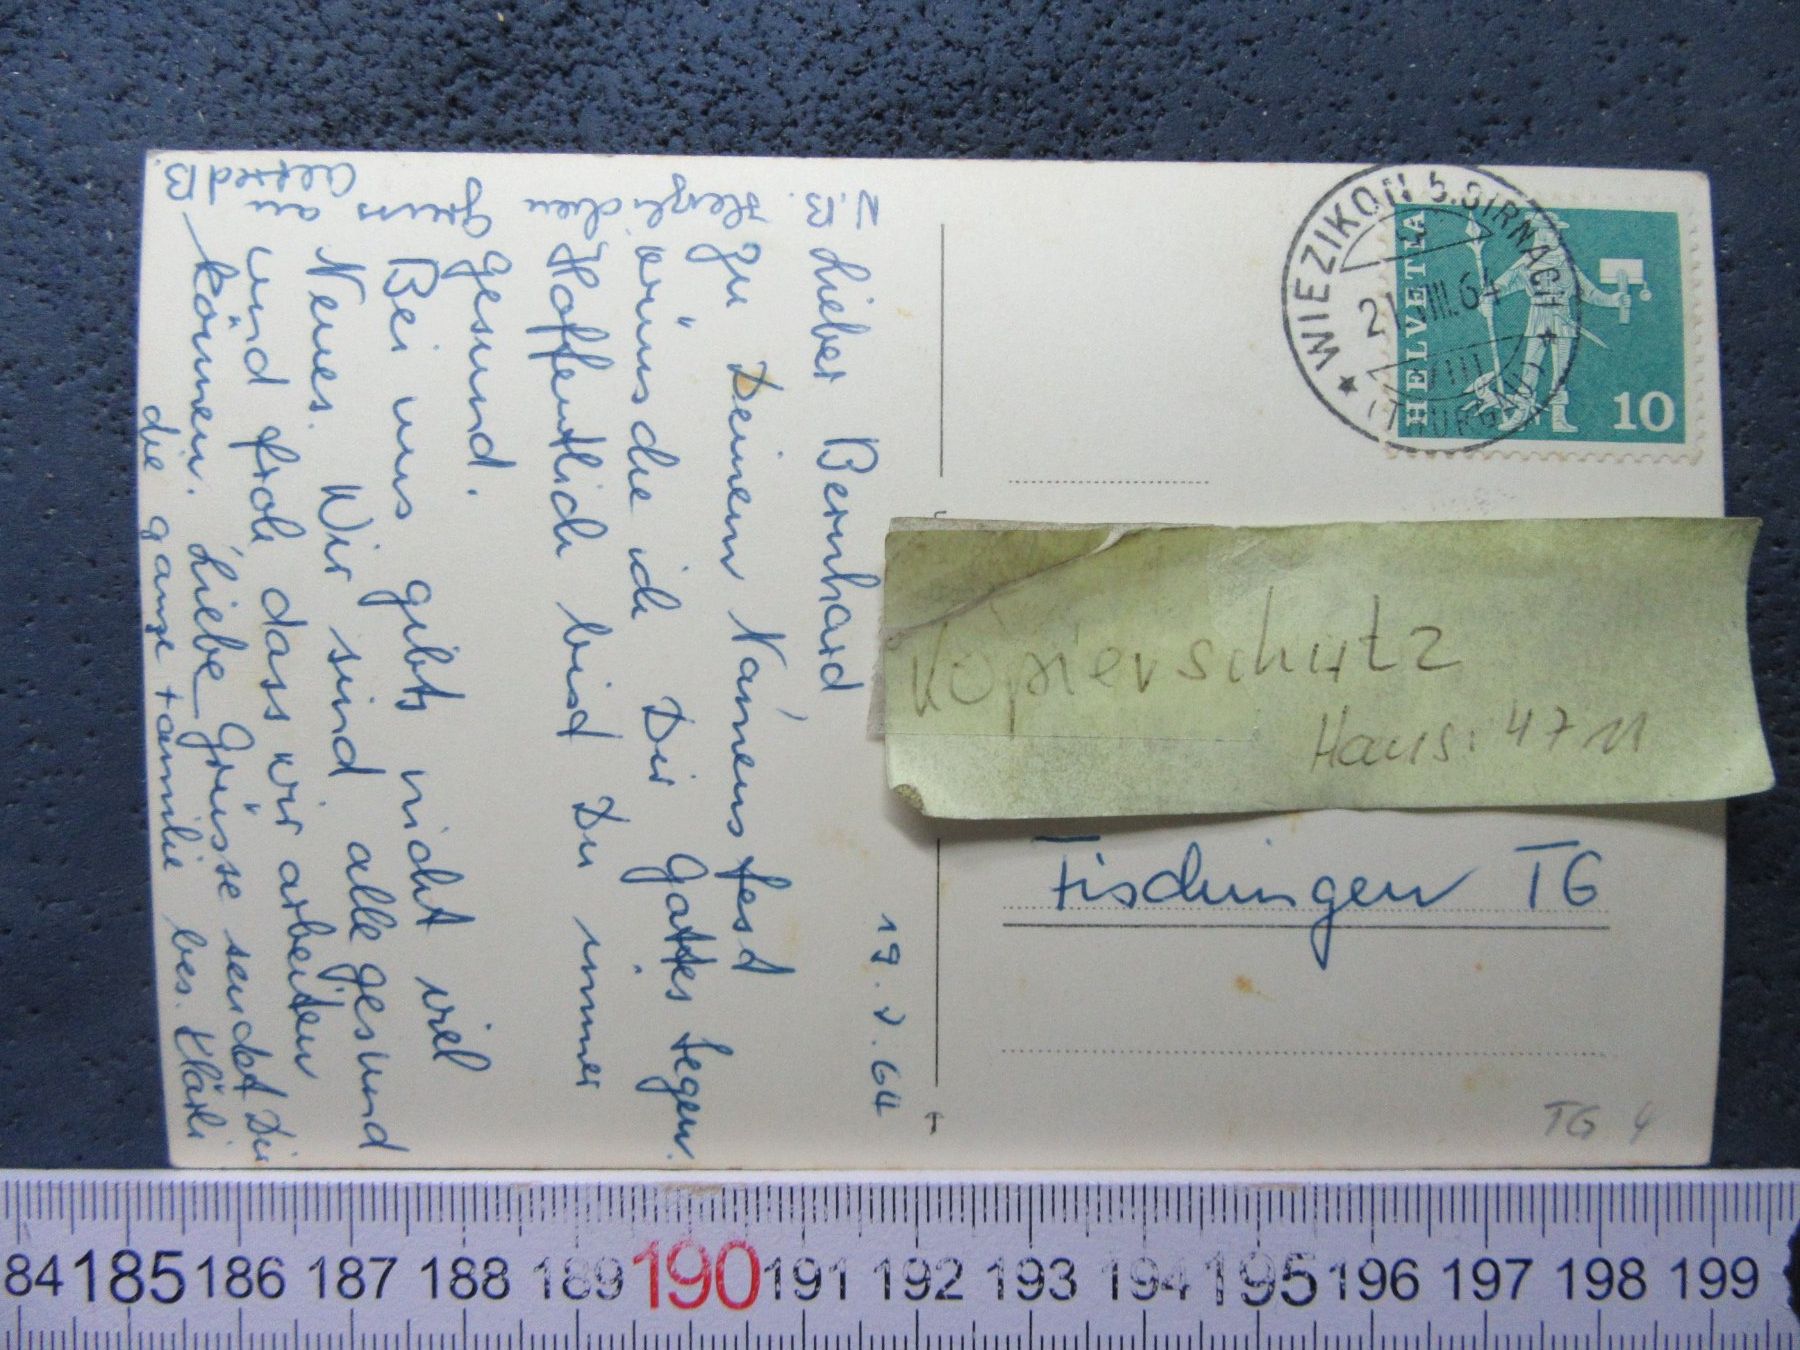 19. V. 64
Lieber Bernhard
Zu Deinem Namensfesd
wünsche ich Dir Gottes Segen.
Hoffentlich bisd Du immer
gesund.
Bei uns gibts nicht viel
Neues. Wir sind alle gesund
und froh dass wir arbeiten
können. Liebe Grüsse sendet Dir
die ganze Familie bes. Kläkli
Z.B. Herzlichen
Gruss
an
Alfred B.
WIEZIKON b. SIRNACH
21. VIII. 64
VIII
(THURGAU)
HELVETIA
10
Kopierschutz
Haus: 4711
Fischingen TG
TG 4
84 185 186 187 188 189 190 191 192 193 194 195 196 197 198 199